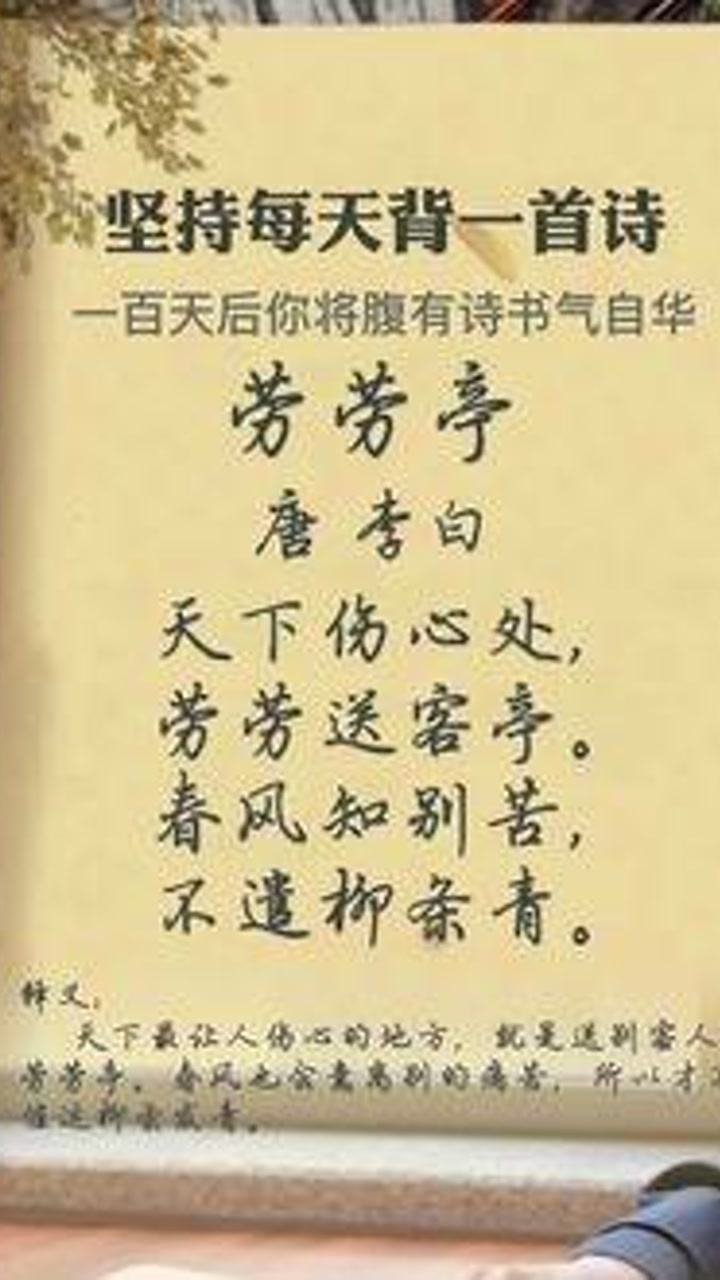 坚持每天背一首诗
一百天后你将腹有诗书气自华
劳劳亭
唐 李白
天下伤心处,
劳劳送客亭。
春风知别苦,
不遣柳条青。
释义:
天下最让人伤心的地方, 就是送别客人
劳劳亭。春风也会意离别的痛苦, 所以才
柳条发青。